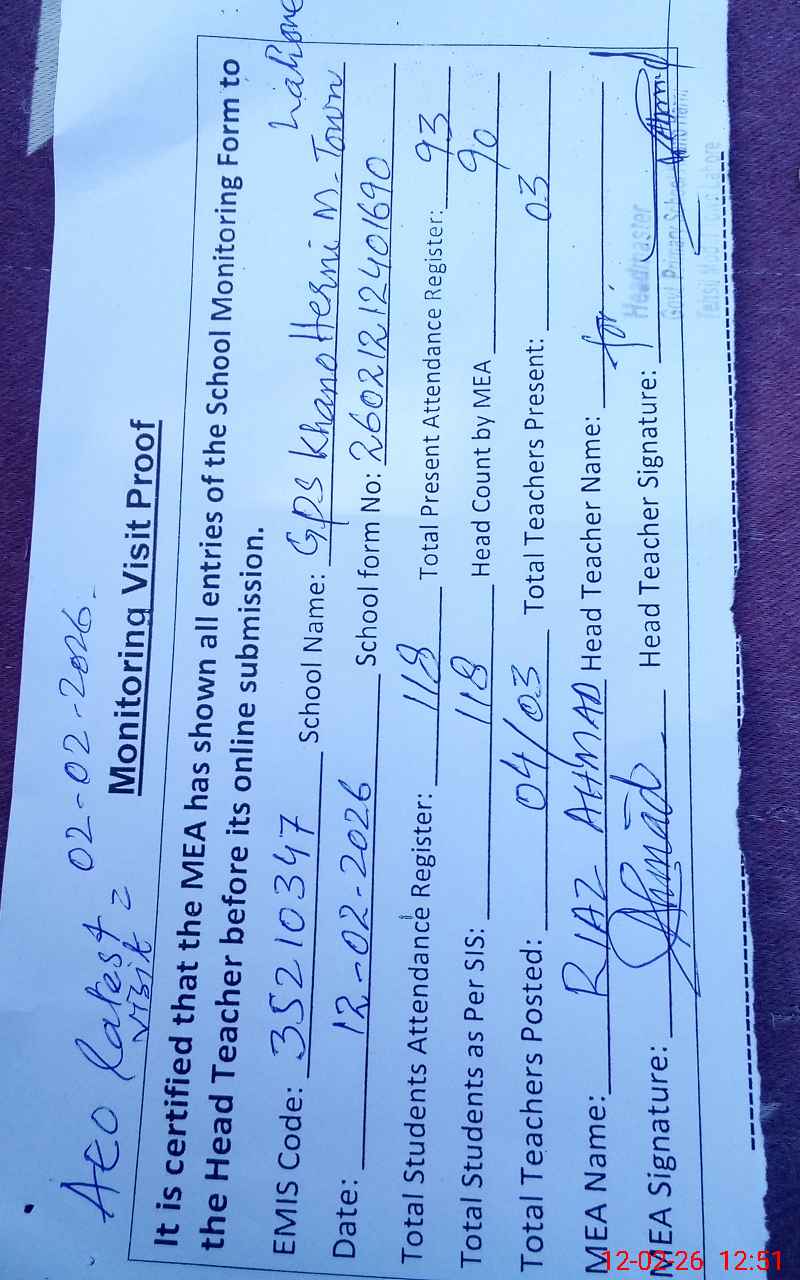 AEO latest visit = 02-02-2026.
Monitoring Visit Proof
It is certified that the MEA has shown all entries of the School Monitoring Form to
the Head Teacher before its online submission.
EMIS Code: 35210347 School Name: GPS Khano Herni M-Town Lahore
Date: 12-02-2026 School form No: 26021212401690
Total Students Attendance Register: 118 Total Present Attendance Register: 93
Total Students as Per SIS: 118 Head Count by MEA 90
Total Teachers Posted: 04/03 Total Teachers Present: 03
MEA Name: RIAZ AHMAD Head Teacher Name: for.
MEA Signature: Ahmad Head Teacher Signature:
Headmaster
Govt. Primary School
Lahore
12-02-26 12:51